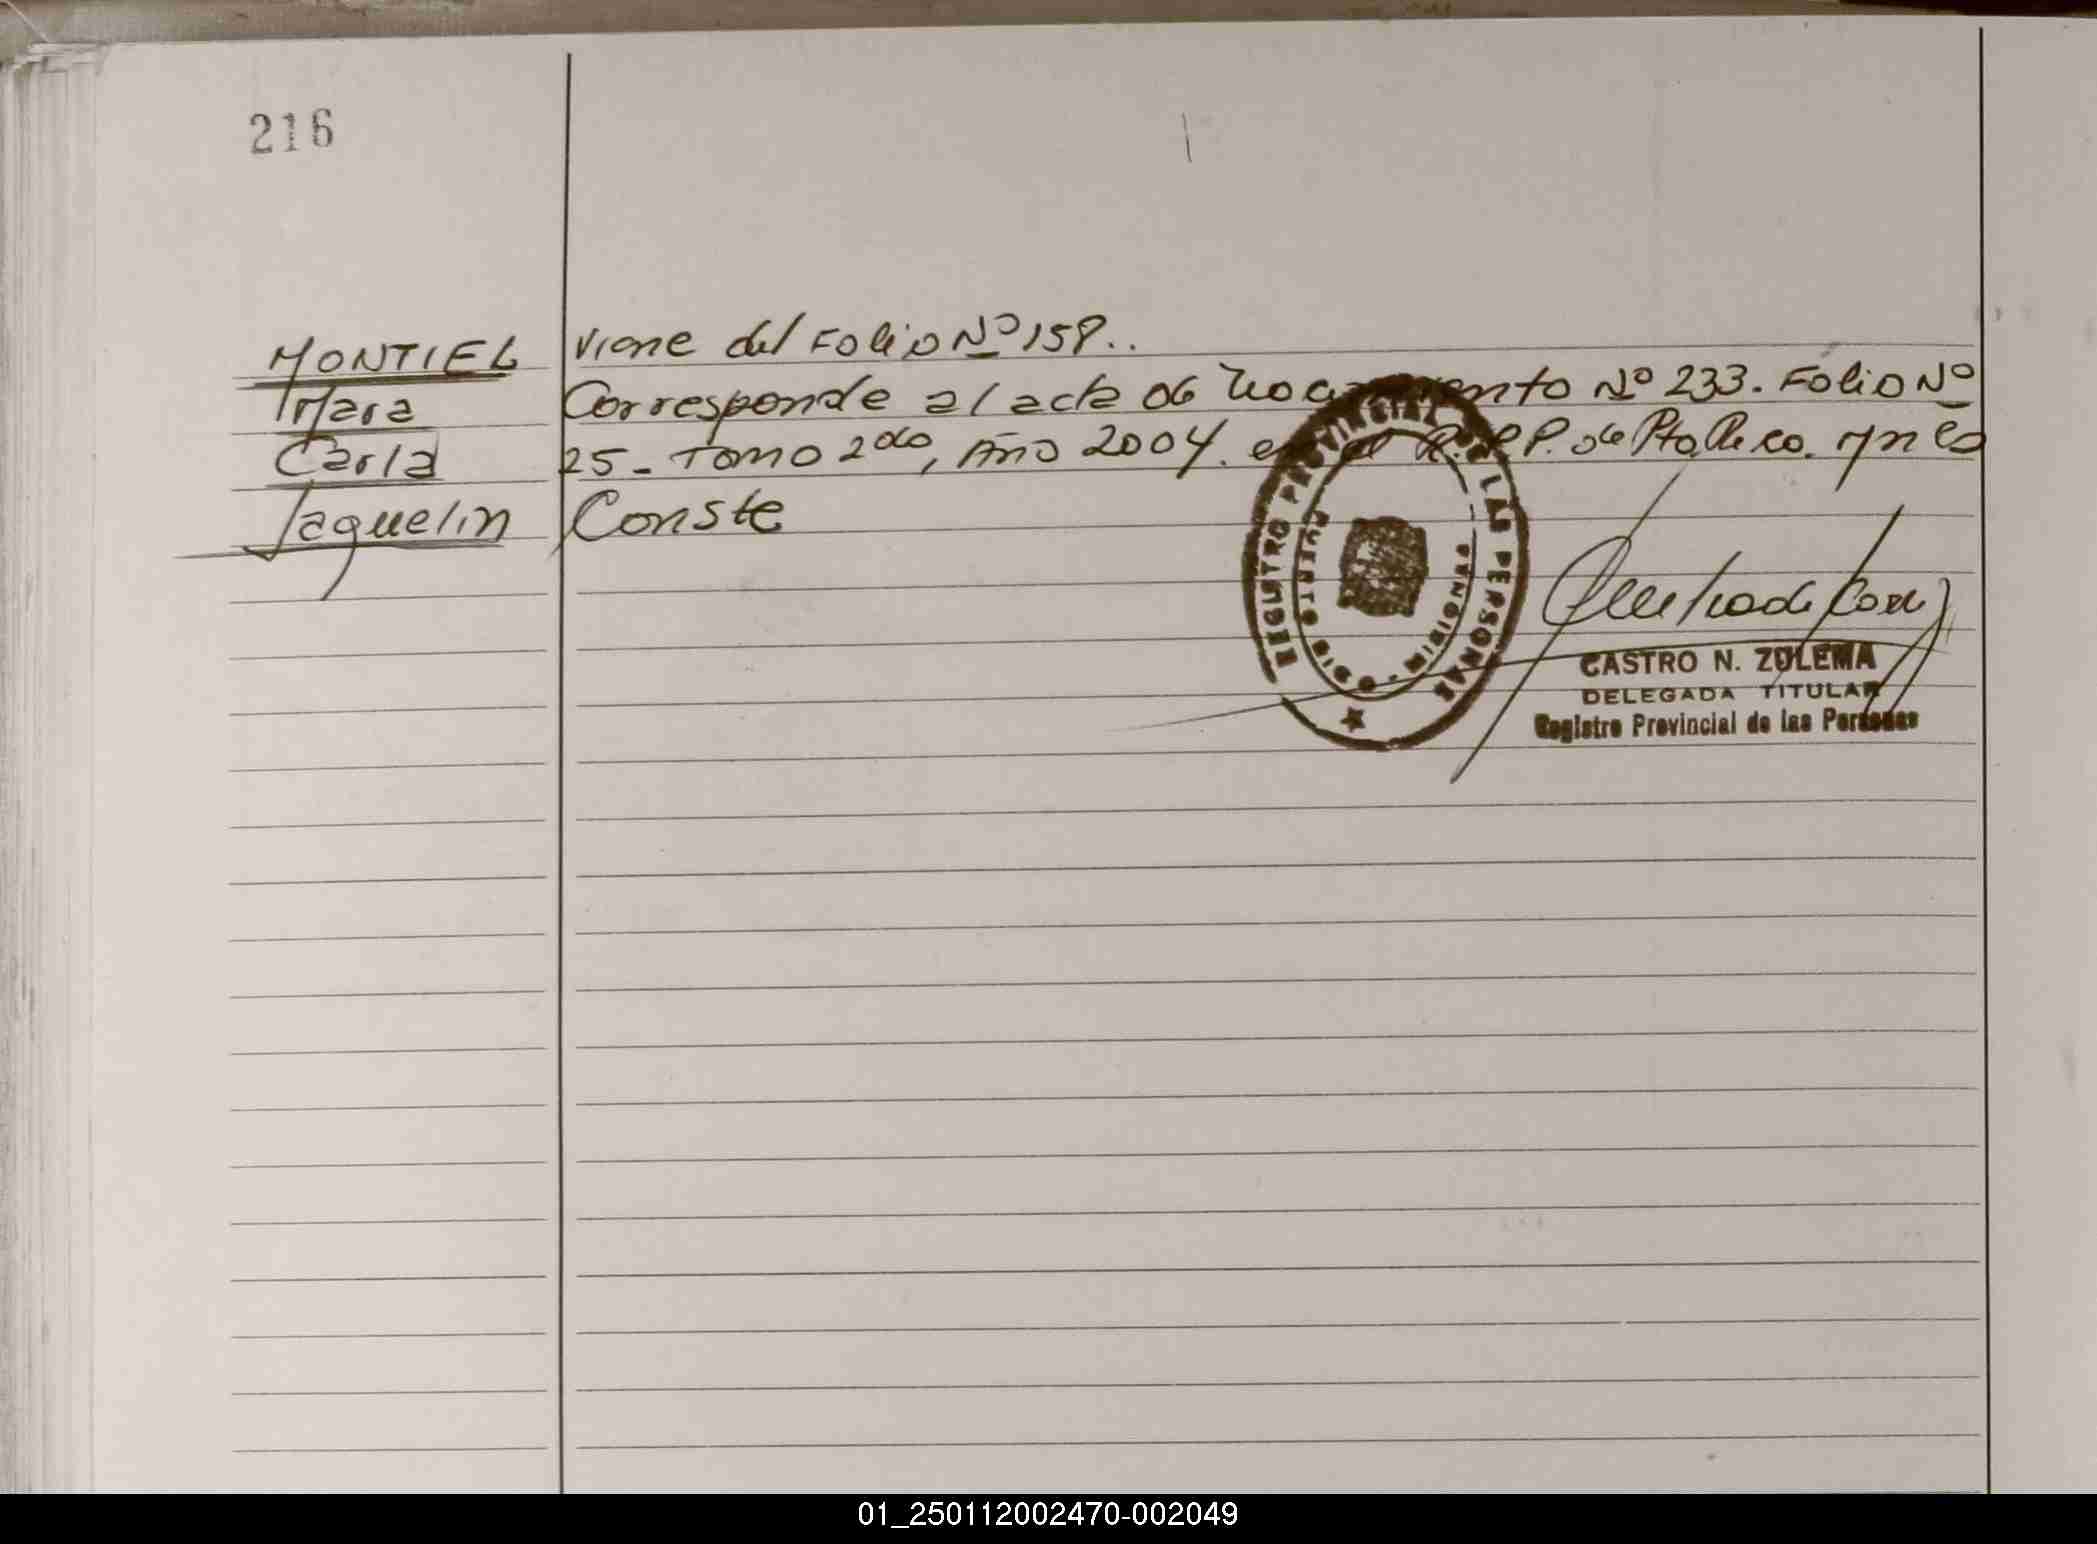 216
MONTIEL
Mara
Carla
Jaquelin
Viene del Folio Nº 158..
Corresponde al acta de Nacimiento Nº 233. Folio Nº
25 - Tomo 2do, Año 2004. en el R.P.P. de Pto Rico.
Conste
REGISTRO PROVINCIAL DE LAS PERSONAS
PUERTO RICO - MISIONES
CASTRO N. ZULEMA
DELEGADA TITULAR
Registro Provincial de las Personas
01_250112002470-002049